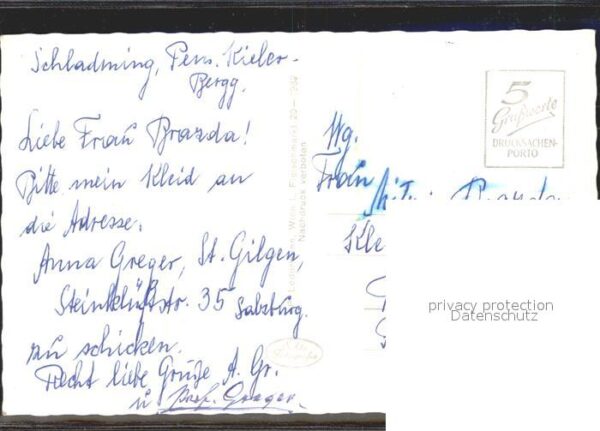 Schladming, Pens. Kieler-
Bergg.
Liebe Frau Brazda!
Bitte mein Kleid an
die Adresse:
Anna Greger, St. Gilgen,
Steinklüftstr. 35 Salzburg.
zu schicken.
Recht liebe Grüße A. Gr.
u Prof. Greger.
Nachdruck verboten
5
Grußworte
DRUCKSACHEN-
PORTO
Wg.
Frau
Brazda
Kle
privacy protection
Datenschutz